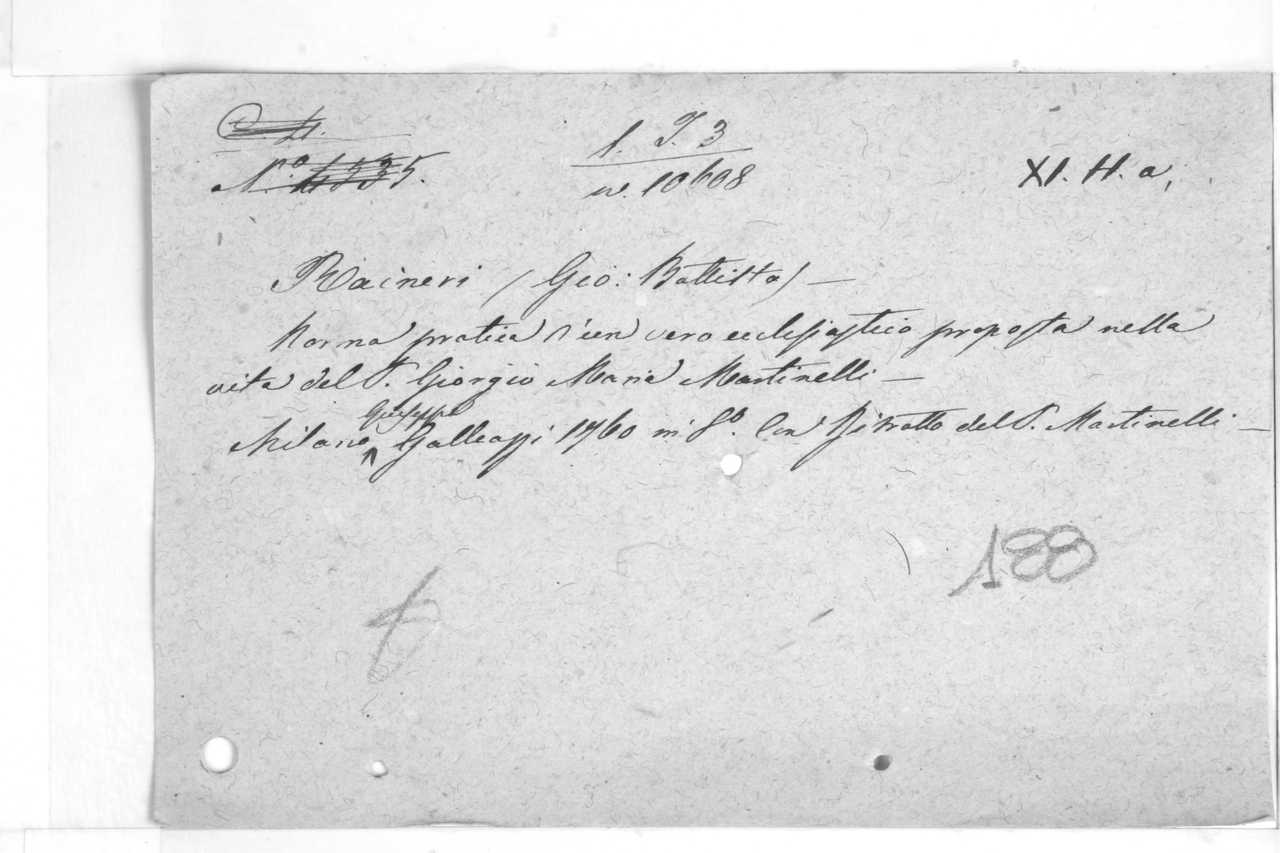 N.º 4535.
1. T. 3
n. 10608
XI. H. a,
Raineri (Gio: Battista) —
Norma pratica d'un vero ecclesiastico proposta nella
vita del P. Giorgio Maria Martinelli —
Giuseppe
Milano Galleazzi 1760 in 8º. Con Ritratto del P. Martinelli —
188